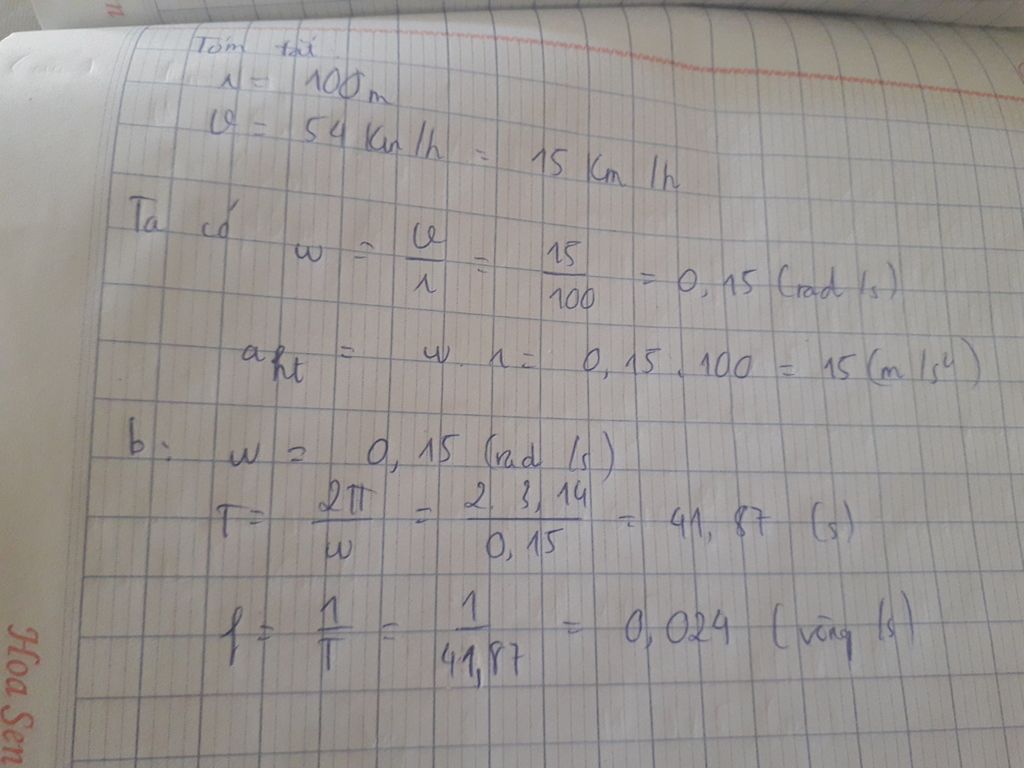 Tóm tắt
r = 100m
v = 54 Km/h = 15 Km/h
Ta có w = v/r = 15/100 = 0,15 (rad/s)
aht = w.r = 0,15.100 = 15 (m/s4)
b: w = 0,15 (rad/s)
T = 2π/w = 2.3,14/0,15 = 41,87 (s)
f = 1/T = 1/41,87 = 0,024 (vòng/s)
Hoa Sen